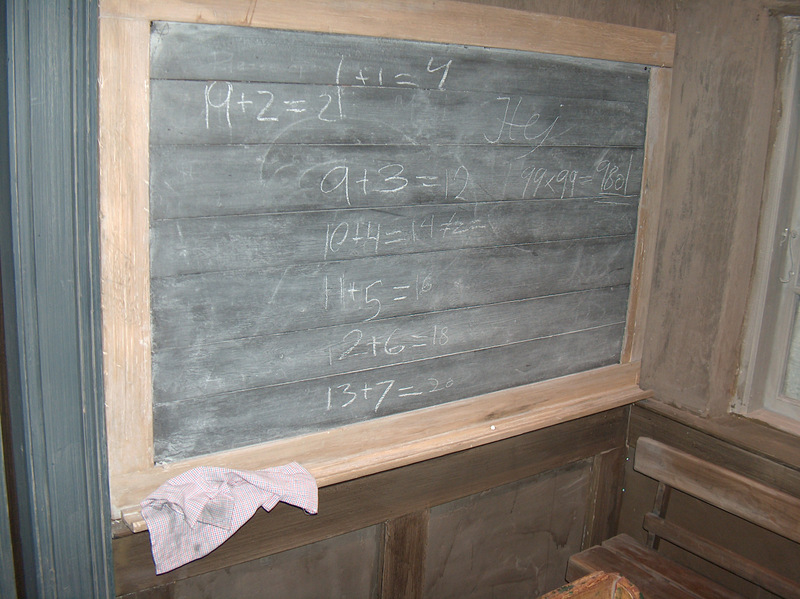 1+1=4
19+2=21
Hej
9+3=12
99×99=9801
10+4=14
11+5=16
12+6=18
13+7=20